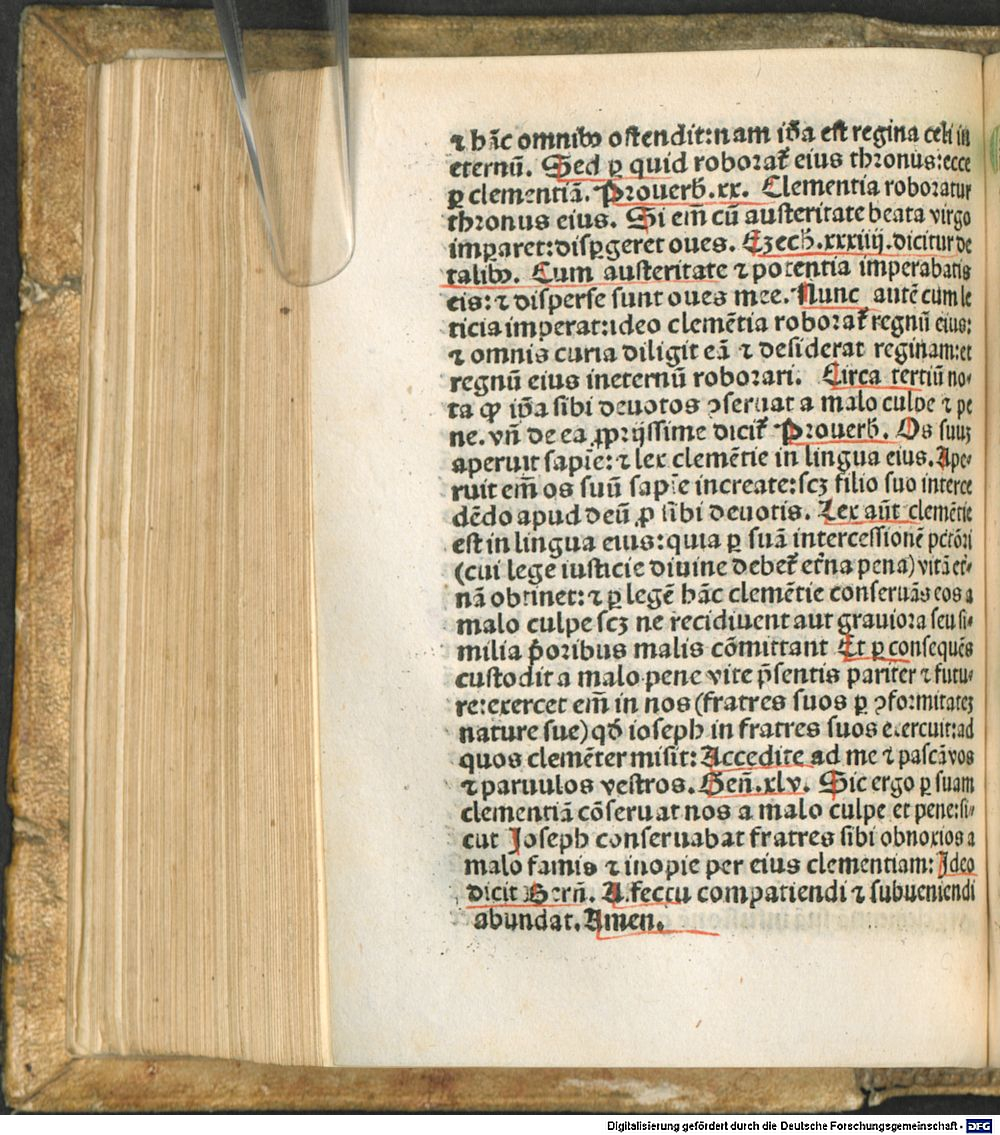 ⁊ hãc omnibꝰ ostendit: nam ip̃a est regina celi in
eternũ. Sed ꝑ quid roborat᷑ eius thronus: ecce
ꝑ clementiã. Prouerb̃. xx. Clementia roboratur
thronus eius. Si em̃ cũ austeritate beata virgo
imꝑaret: disꝑgeret oues. Ezech̃. xxxiiij. dicitur de
talibꝰ. Cum austeritate ⁊ potentia imperabatis
eis: ⁊ disperse sunt oues mee. Nunc autẽ cum le
ticia imperat: ideo clemẽtia roborat᷑ regnũ eius:
⁊ omnis curia diligit eã ⁊ desiderat reginam: et
regnũ eius ineternũ roborari. Circa tertiũ no⸗
ta ꝙ ip̃a sibi deuotos ꝯseruat a malo culpe ⁊ pe
ne. vñ de ea ꝓprijssime dicit᷑ Prouerb̃. Os suuꝫ
aperuit sapiẽ: ⁊ lex clemẽtie in lingua eius. Ape⸗
ruit em̃ os suũ sapiẽ increate: scꝫ filio suo interce
dẽdo apud deũ ꝓ sibi deuotis. Lex aũt clemẽtie
est in lingua eius: quia ꝑ suã intercessionẽ pctõri
(cui lege iusticie diuine debet᷑ et̃na pena) vitã et̃⸗
nã obtinet: ⁊ ꝑ legẽ hãc clemẽtie conseruãs eos a
malo culpe scꝫ ne recidiuent aut grauiora seu si⸗
milia p̃oribus malis cõmittant Et ꝑ consequẽs
custodit a malo pene vite p̃sentis pariter ⁊ futu⸗
re: exercet em̃ in nos (fratres suos ꝑ ꝯformitateꝫ
nature sue) qđ ioseph in fratres suos exercuit: ad
quos clemẽter misit: Accedite ad me ⁊ pascã vos
⁊ paruulos vestros. Geñ. xlv. Sic ergo ꝑ suam
clementiã cõseruat nos a malo culpe et pene: si⸗
cut Joseph conseruabat fratres sibi obnoxios a
malo famis ⁊ inopie per eius clementiam: Jdeo
dicit Berñ. Affectu compatiendi ⁊ subueniendi
abundat. Amen.
Digitalisierung gefördert durch die Deutsche Forschungsgemeinschaft - DFG